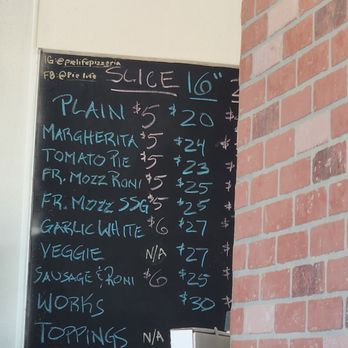 IG:@pielifepizzeria
FB:@Pie Life
SLICE 16" 2
PLAIN $5 $20
MARGHERITA $5 $24
TOMATO PIE $5 $23
FR. MOZZ RONI $5 $25
FR. MOZZ SSG $5 $25
GARLIC WHITE $6 $27
VEGGIE N/A $27
SAUSAGE & RONI $6 $25
WORKS $30
TOPPINGS N/A